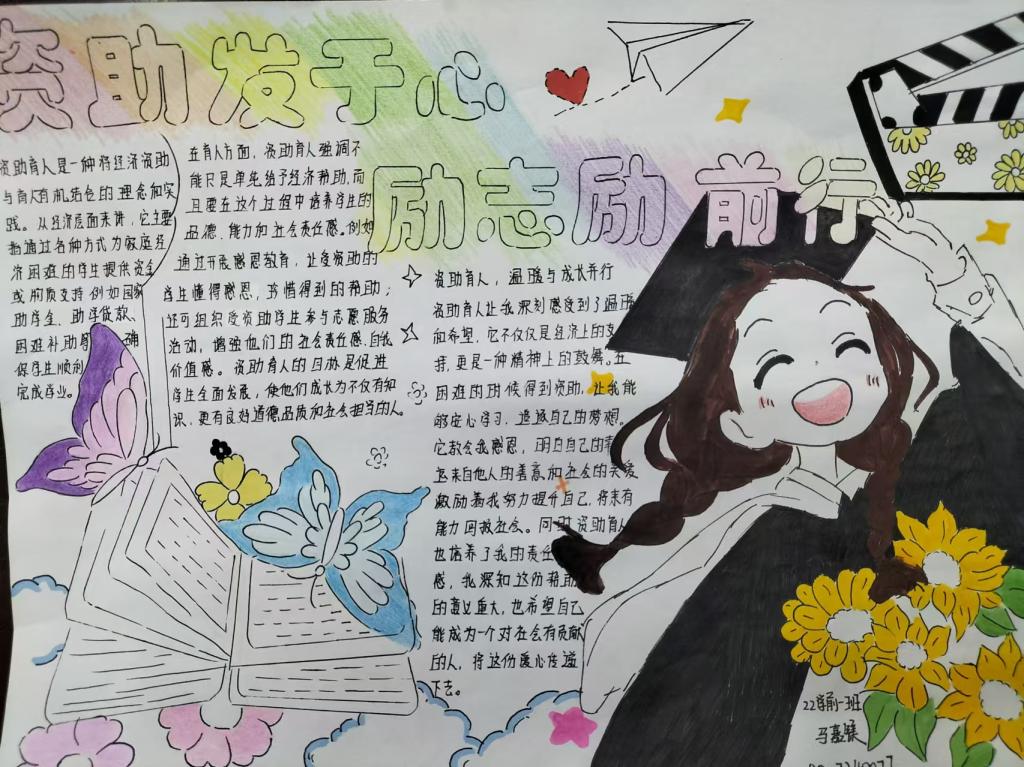 资助发于心
励志励前行
资助育人是一种将经济资助
与育人有机结合的理念和实
践。从经济层面来讲,它主要
指通过各种方式为家庭经
济困难的学生提供资金
或物质支持 例如国家
助学金、助学贷款、
困难补助 确
保学生顺利
完成学业。
在育人方面,资助育人强调不
能只是单纯给予经济帮助,而
且要在这个过程中培养学生的
品德、能力和社会责任感。例如
通过开展感恩教育,让受资助的
学生懂得感恩,珍惜得到的帮助;
还可组织受资助学生参与志愿服务
活动,增强他们的社会责任感、自我
价值感。资助育人的目标是促进
学生全面发展,使他们成长为不仅有知
识,更有良好道德品质和社会担当的人。
资助育人,温暖与成长并行
资助育人让我深刻感受到了温暖
和希望,它不仅仅是经济上的支
持,更是一种精神上的鼓舞。在
困难的时候得到资助,让我能
够安心学习,追逐自己的梦想。
它教会我感恩,明白自己的
来自他人的善意和社会的关爱
激励着我努力提升自己,将来有
能力回报社会。同时 资助育人
也培养了我的责任
感,我深知这份帮助
的意义重大,也希望自己
能成为一个对社会有贡献
的人,将这份爱心传递
下去。
22学前一班
马